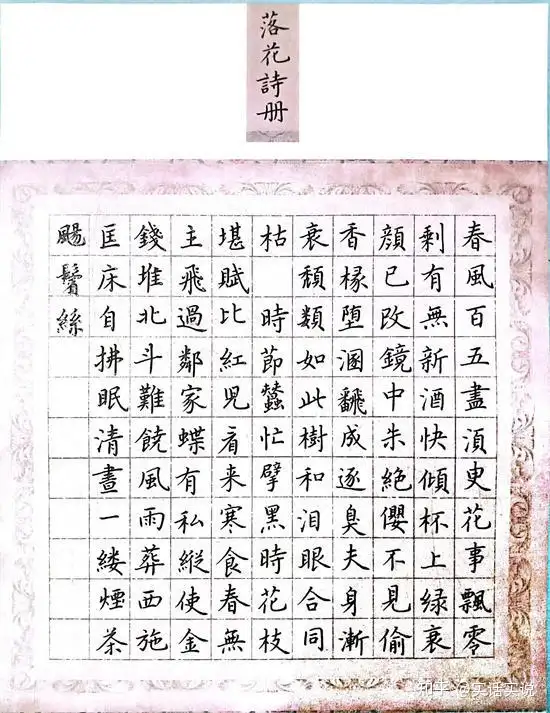 落花詩册
春風百五盡湏臾花事飄零
剩有無新酒快傾杯上緑衰
顔已改鏡中朱絶纓不見偷
香掾墮溷飜成逐臭夫身漸
衰頽類如此樹和泪眼合同
枯 時節蠶忙擘黑時花枝
堪賦比紅兒看来寒食春無
主飛過鄰家蝶有私縱使金
錢堆北斗難饒風雨葬西施
匡床自拂眠清晝一縷煙茶
颺鬢絲
知乎 @实话实说